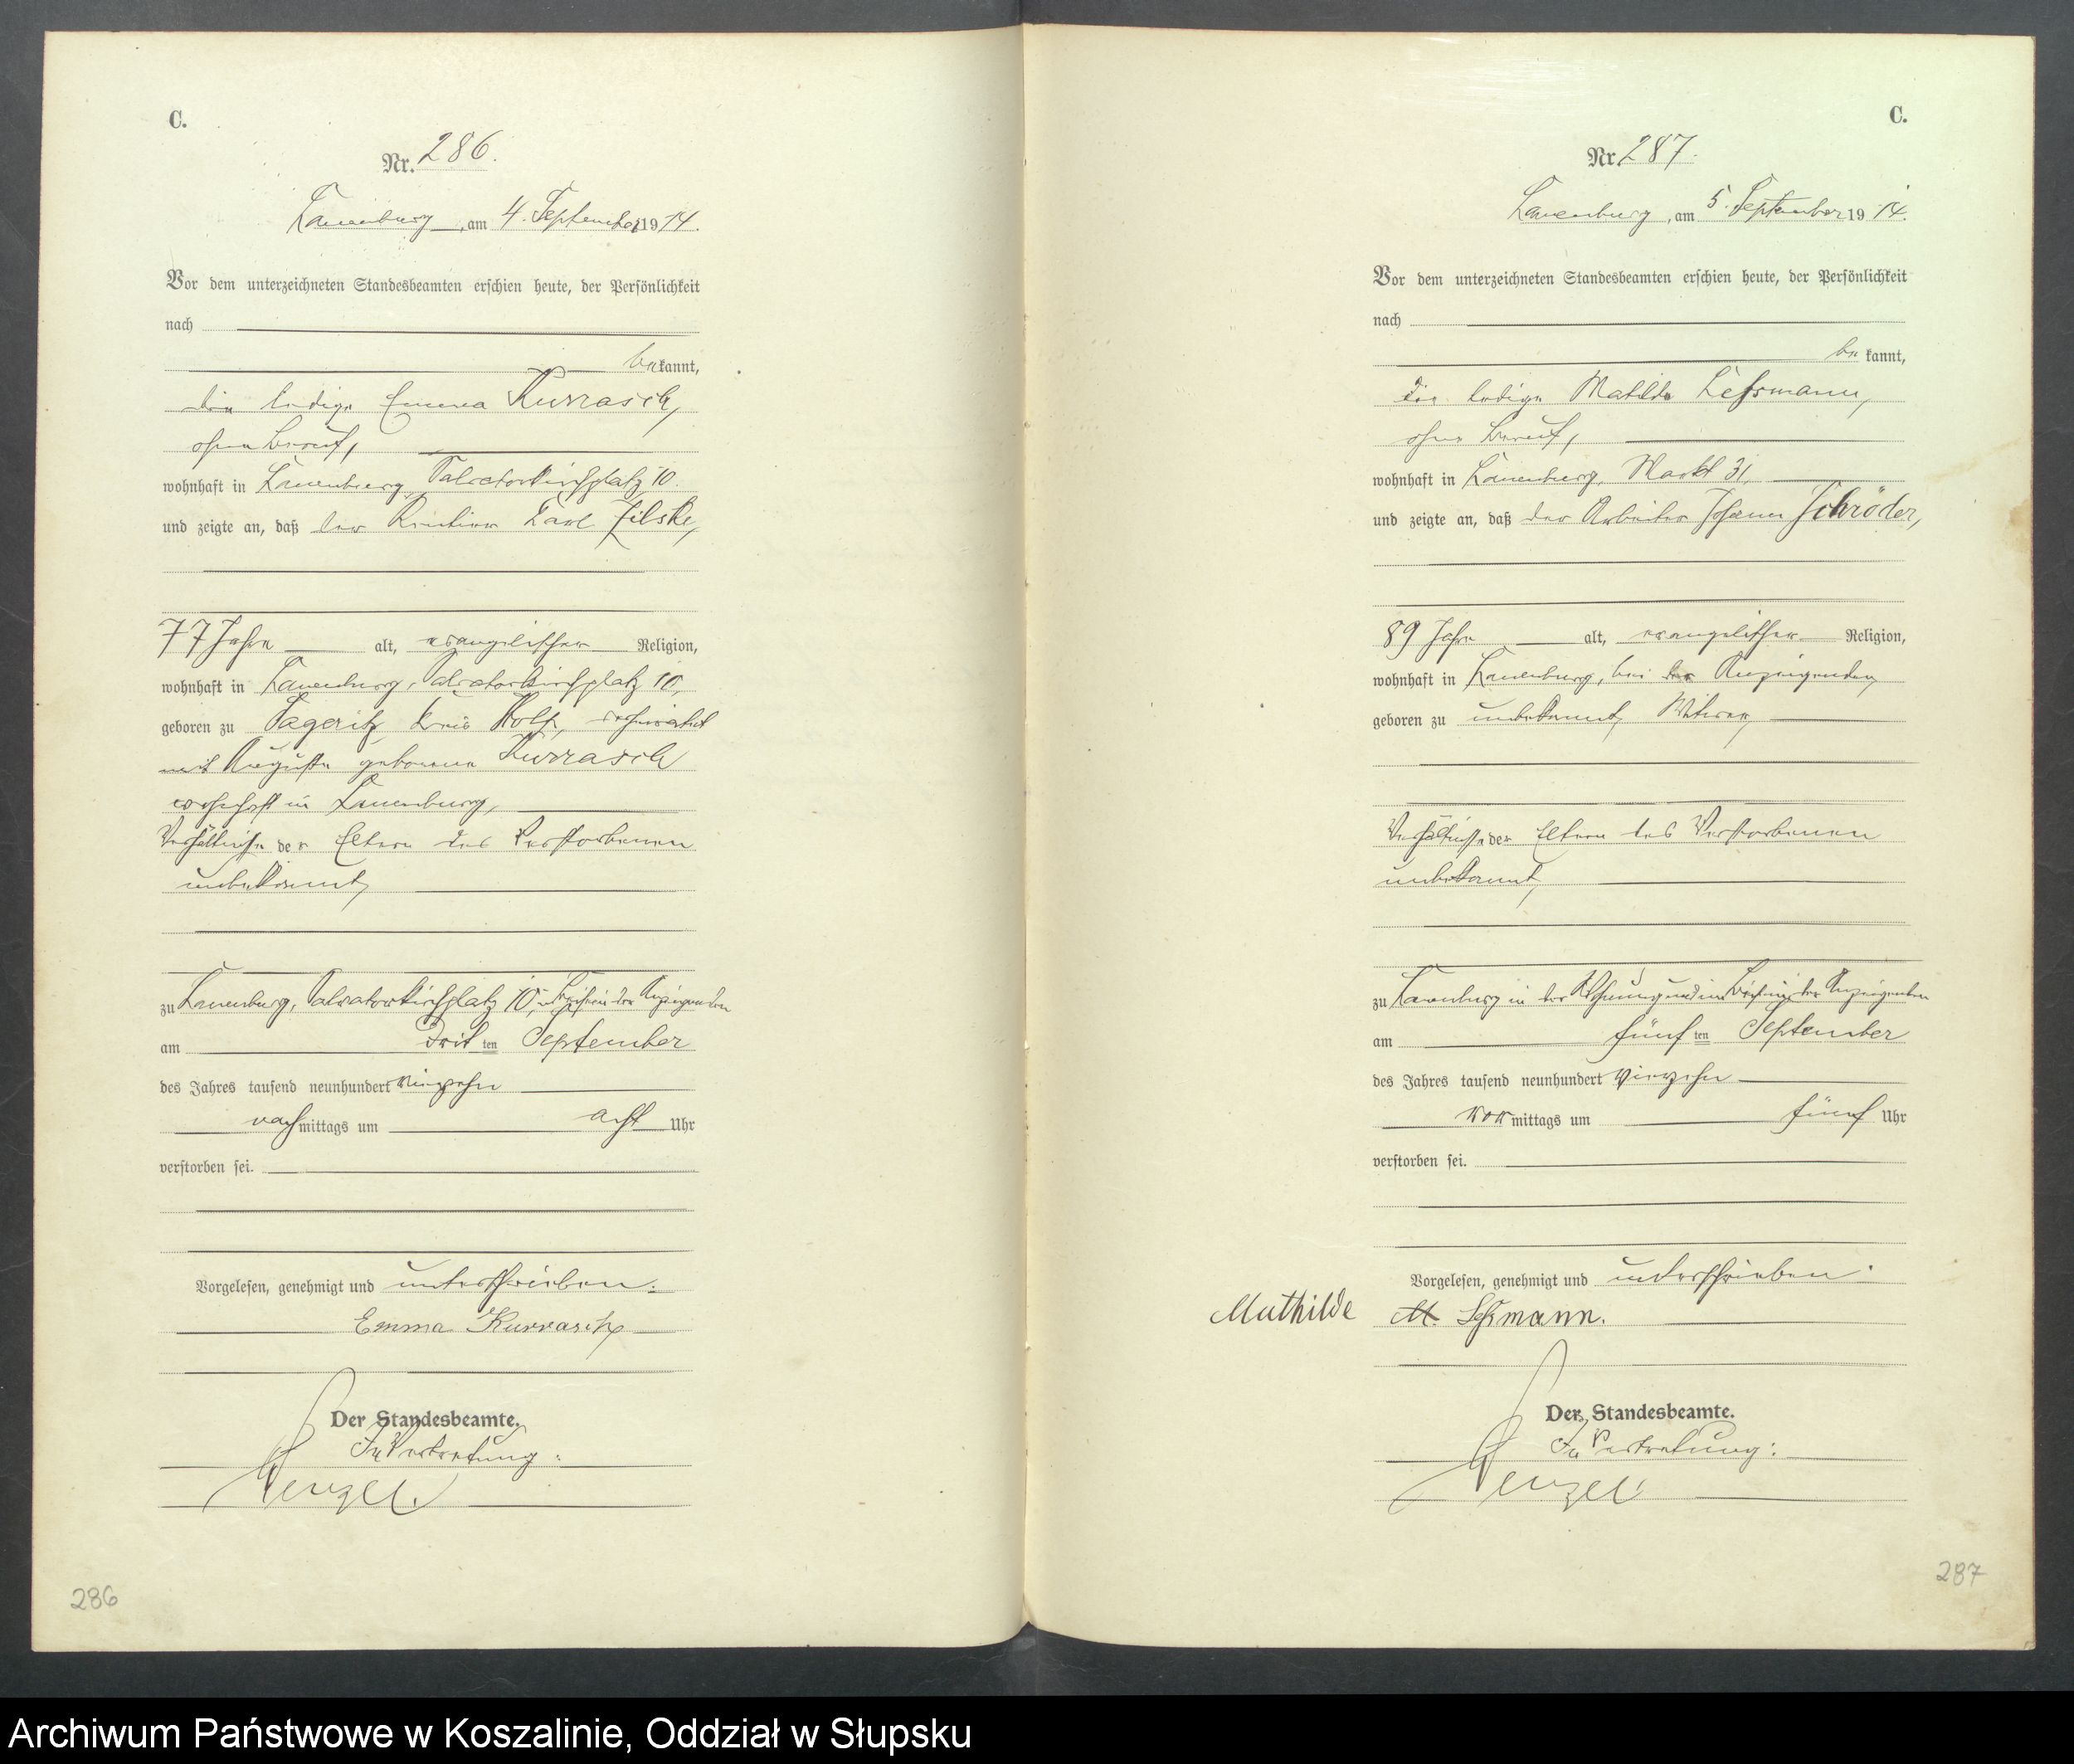 C.
Nr. 286.
Lauenburg, am 4. September 1914.
Vor dem unterzeichneten Standesbeamten erschien heute, der Persönlichkeit
nach
bekannt,
die ledige Emma Kurrasch,
ohne Beruf,
wohnhaft in Lauenburg Salvatorkirchplatz 10.
und zeigte an, daß der Rentier Carl Zilske,
77 Jahre alt, evangelischer Religion,
wohnhaft in Lauenburg, Salvatorkirchplatz 10,
geboren zu Kreis Stolp, verheiratet
mit Auguste geborene Kurrasch
wohnhaft in Lauenburg,
Verhältnisse der Eltern des Verstorbenen
unbekannt,
zu Lauenburg, Salvatorkirchplatz 10, in Beisein der Anzeigenden
am dritten September
des Jahres tausend neunhundert vierzehn
nachmittags um acht Uhr
verstorben sei.
Vorgelesen, genehmigt und unterschrieben.
Emma Kurrasch
Der Standesbeamte.
In Vertretung:
Wenzel.
286
C.
Nr. 287.
Lauenburg, am 5. September 1914.
Vor dem unterzeichneten Standesbeamten erschien heute, der Persönlichkeit
nach
bekannt,
die ledige Matilde Leßmann,
ohne Beruf,
wohnhaft in Lauenburg, Markt 31,
und zeigte an, daß der Arbeiter Johann Schröder,
89 Jahre alt, evangelischer Religion,
wohnhaft in Lauenburg, bei der Anzeigenden,
geboren zu unbekannt, Witwer,
Verhältnisse der Eltern des Verstorbenen
unbekannt,
zu Lauenburg in der Wohnung und im Beisein der Anzeigenden
am fünften September
des Jahres tausend neunhundert vierzehn
vormittags um fünf Uhr
verstorben sei.
Vorgelesen, genehmigt und unterschrieben.
Mathilde M. Leßmann.
Der Standesbeamte.
In Vertretung:
Wenzel
287
Archiwum Państwowe w Koszalinie, Oddział w Słupsku